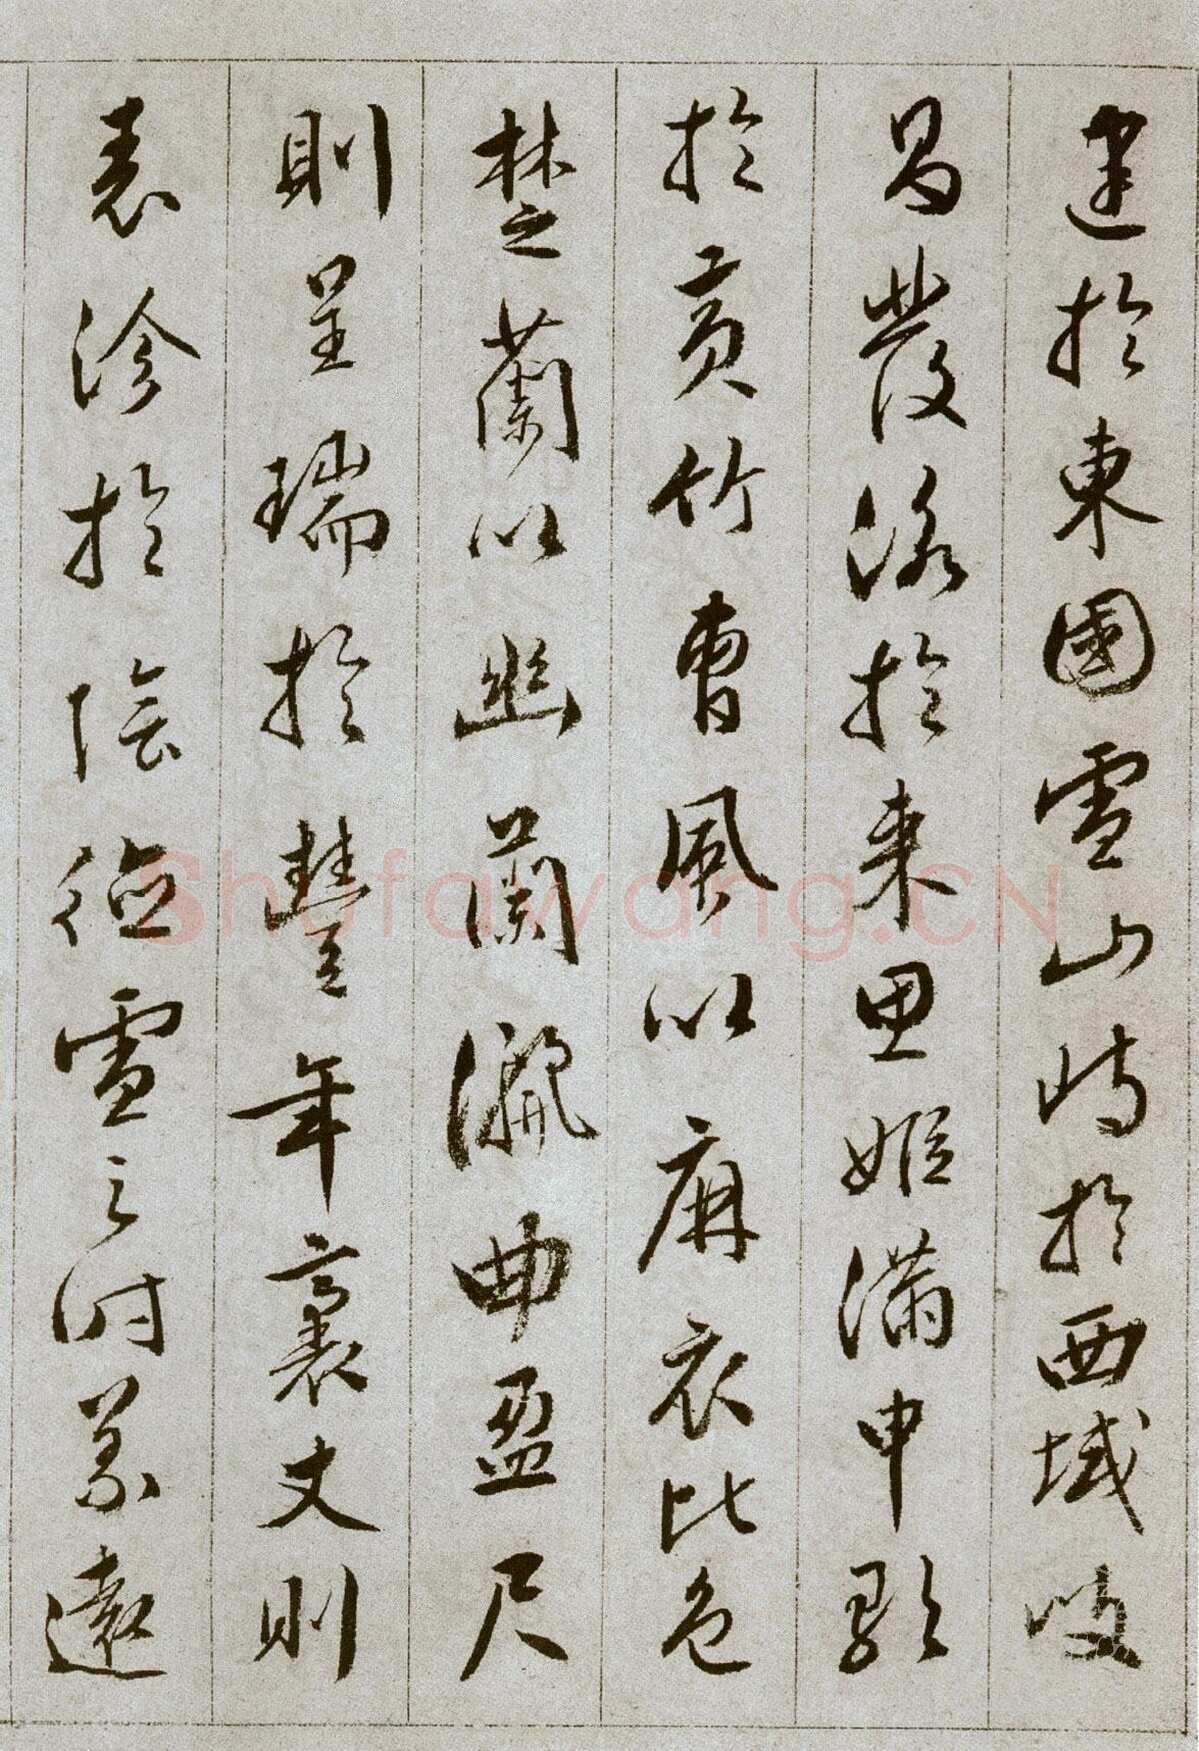 建於東國雪山峙於西域岐
昌發詠於來思姬滿申歌
於黃竹曹風以麻衣比色
楚蘭以幽蘭儷曲盈尺
則呈瑞於豐年袤丈則
表沴於陰德雪之時義遠
Shufawang.CN